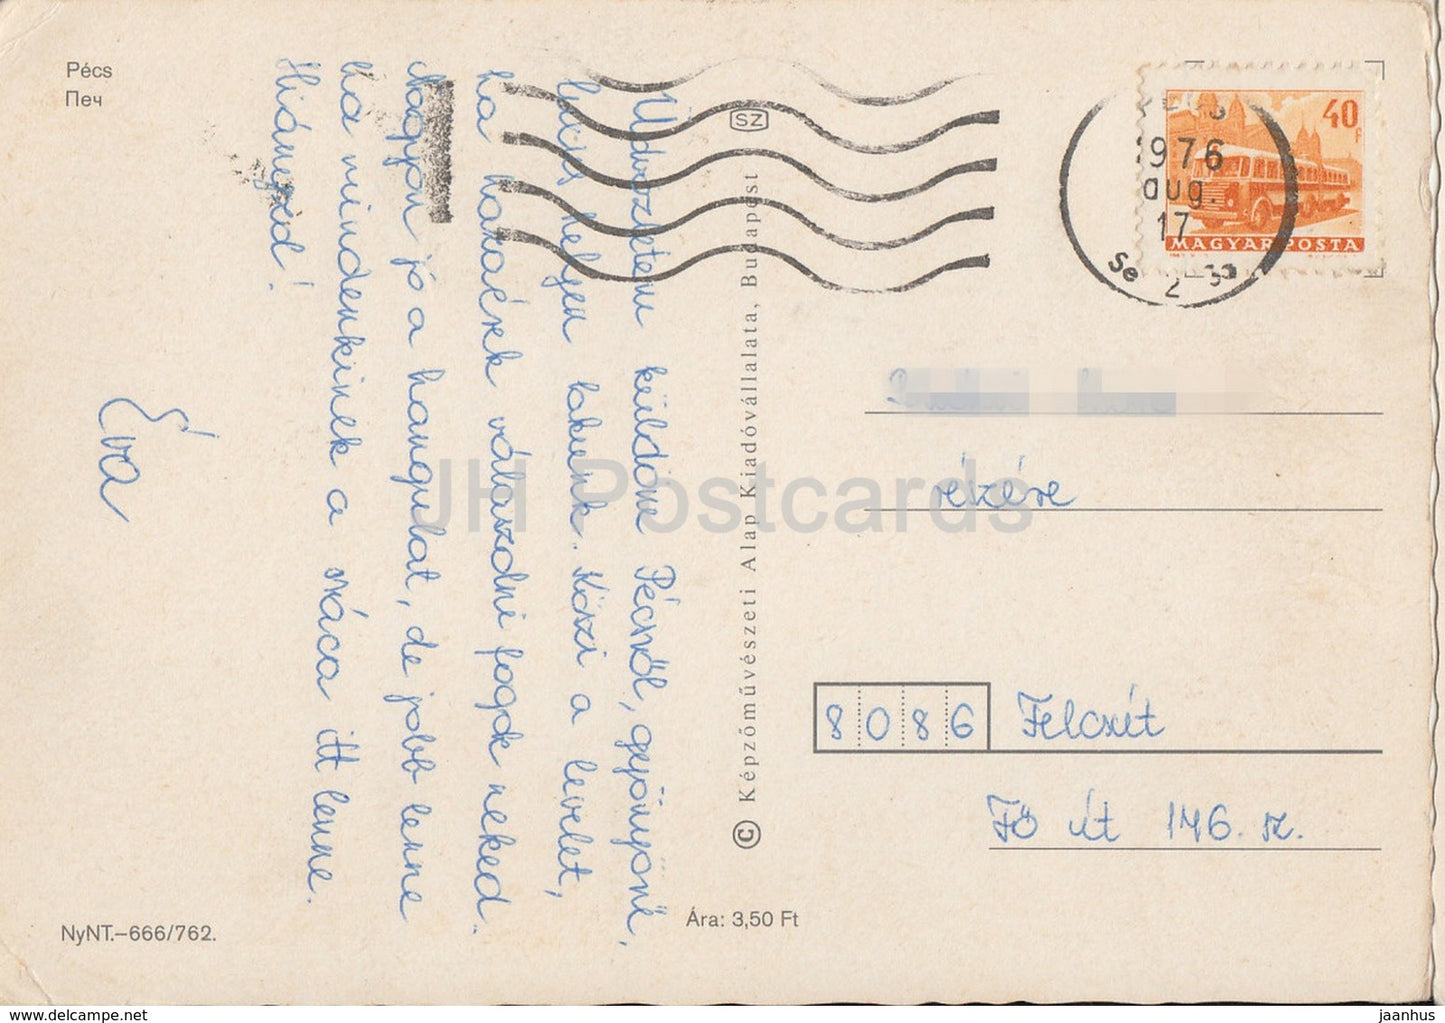 Pécs
Печ
Üdvözletem küldöm Pécsről, gyönyörű,
helyen lakunk. Köszi a levelet,
ha hazaérek válaszolni fogok neked.
Nagyon jó a hangulat, de jobb lenne
ha mindenkinek a sráca itt lenne.
Hiányzol!
Éva
NyNT.–666/762.
Ára: 3,50 Ft
SZ
© Képzőművészeti Alap Kiadóvállalata, Budapest
1976
aug.
17
40 f
MAGYAR POSTA
részére
8086 Felcsút
Fő út 146. sz.
JH Postcards
hippostcard.com/store/jaanhus
jaanhus